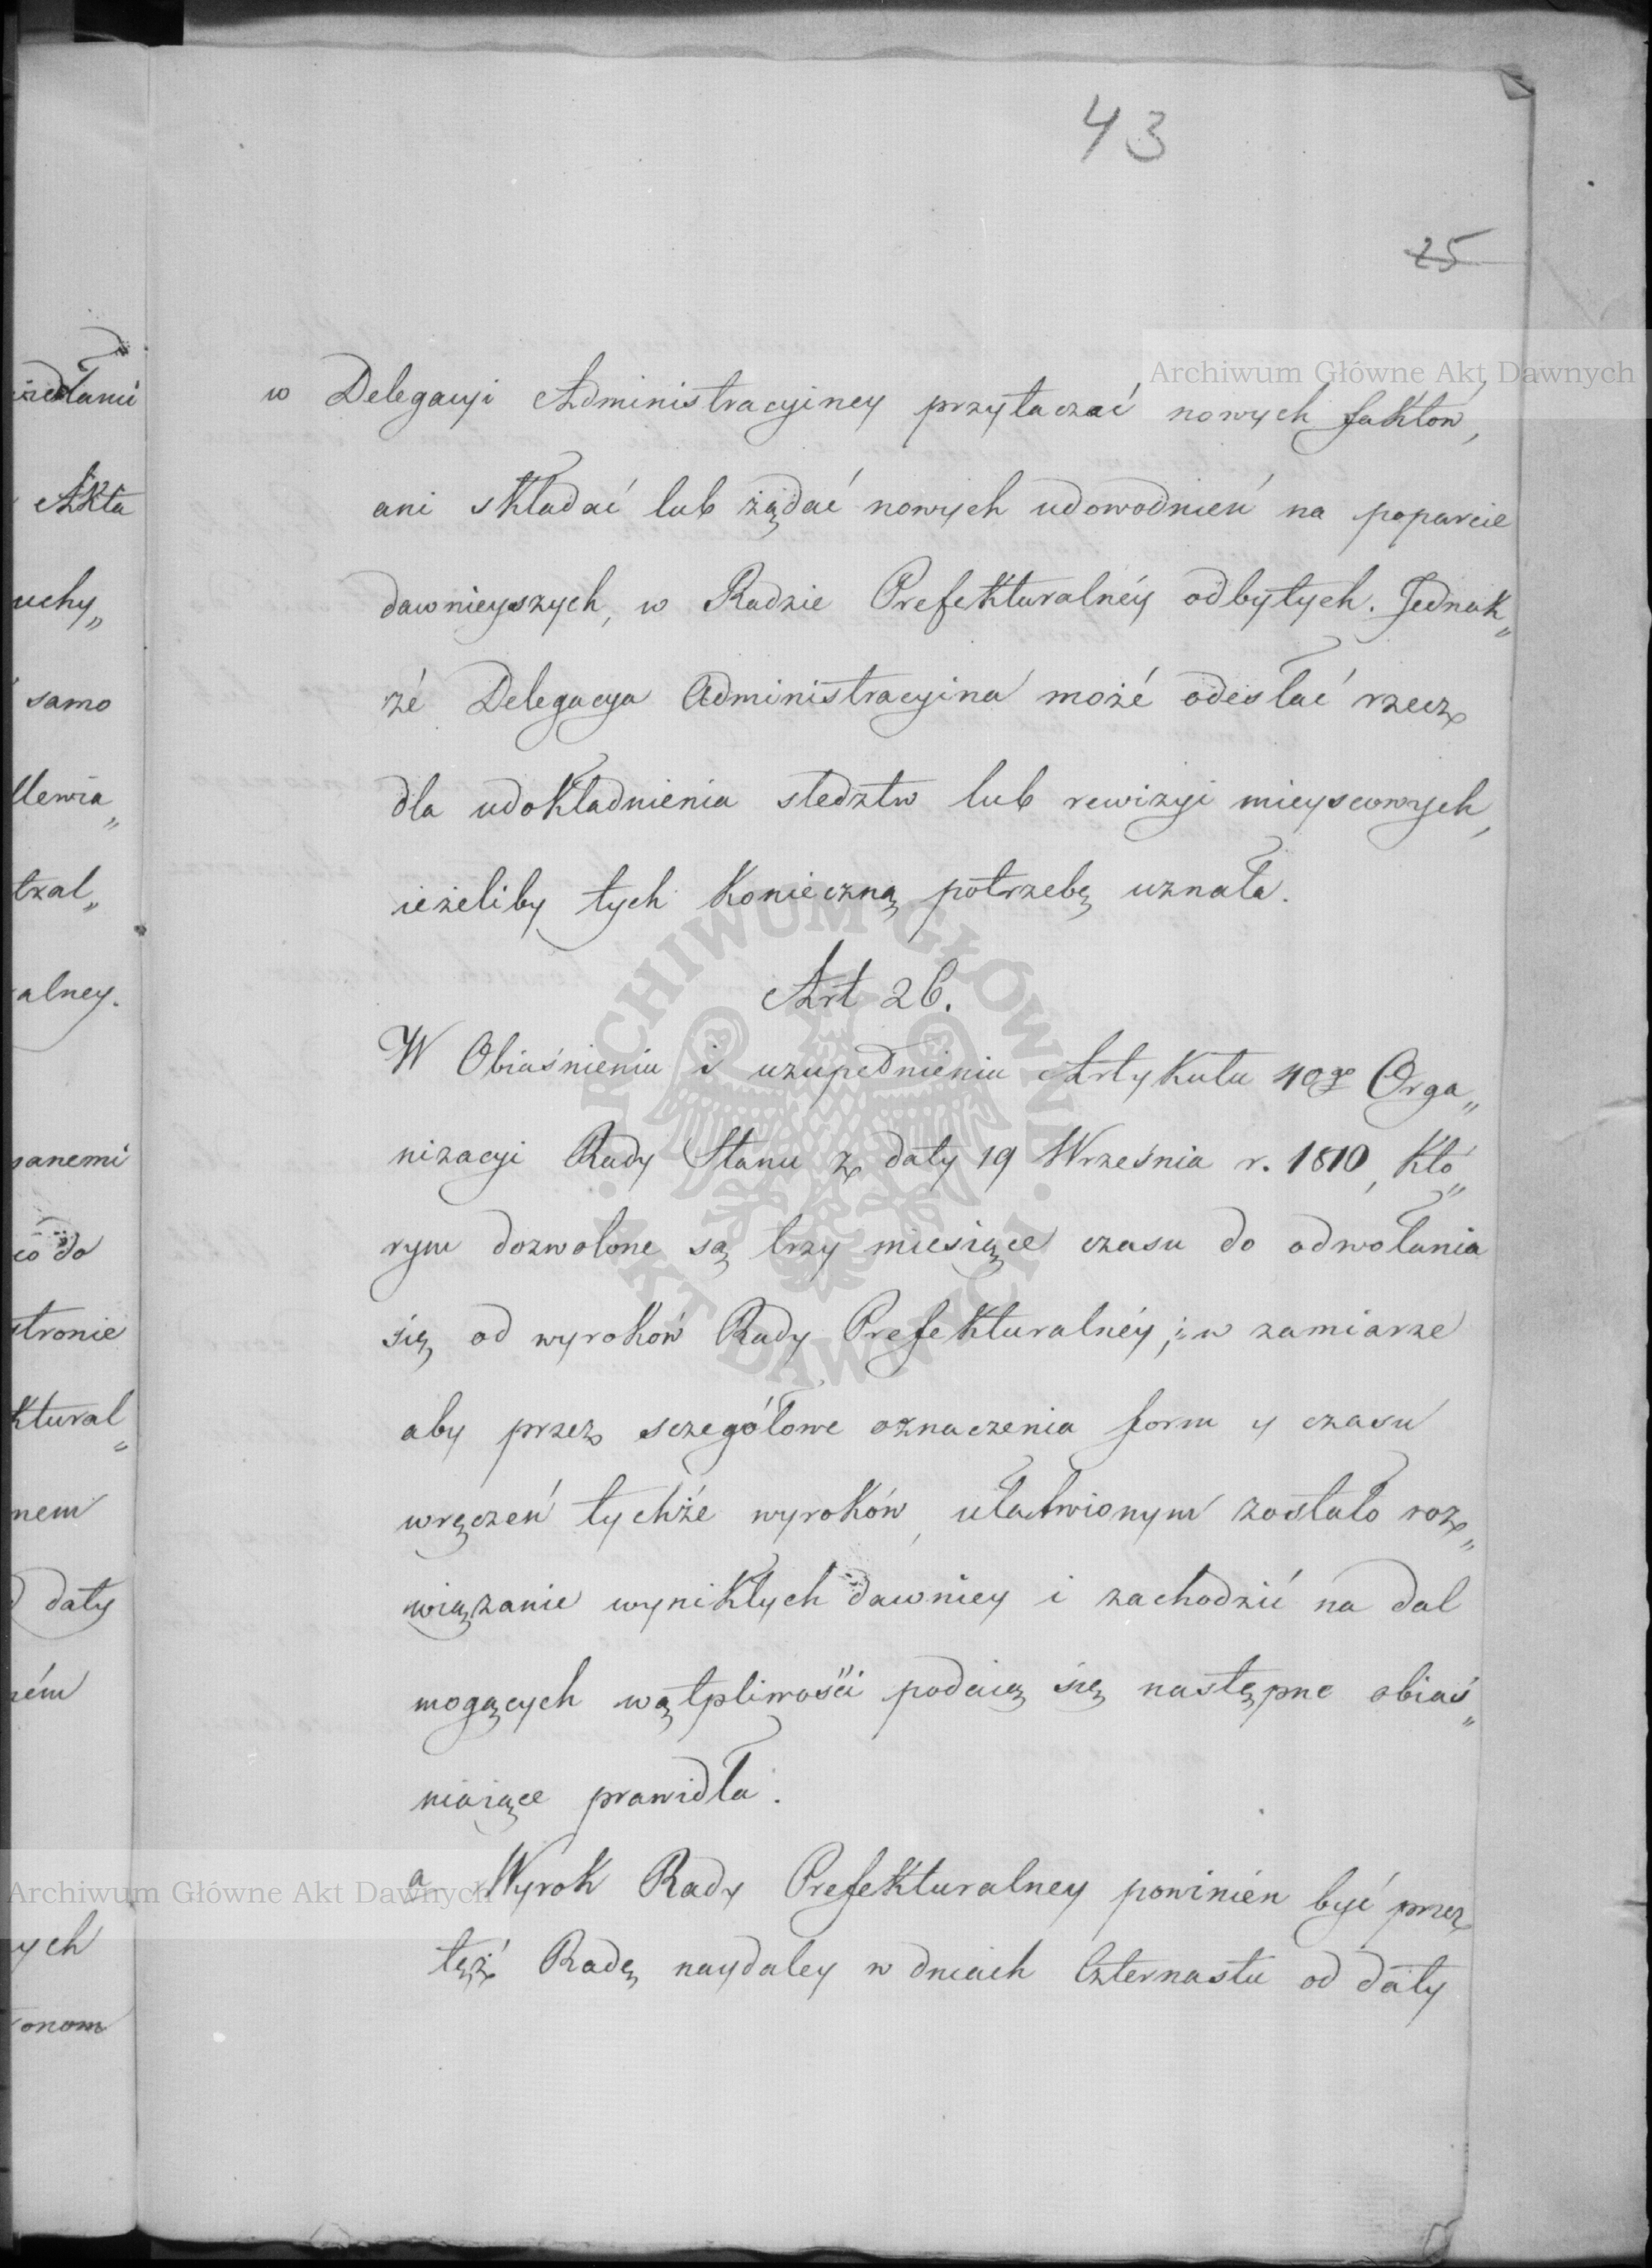 43
25
w Delegacyi Administracyiney przytaczać nowych faktów,
ani składać lub żądać nowych udowodnień na poparcie
dawnieyszych, w Radzie Prefekturalnéy odbytych. Jednak„
żé Delegacya Administracyina możé odesłać rzecz
dla udokładnienia sledztw lub rewizyi mieyscowych,
ieżeliby tych konieczną potrzebę uznała.
Art 26.
W Obiaśnieniu i uzupełnieniu Artykułu 40go Orga„
nizacyi Rady Stanu z daty 19 Września r. 1810, któ„
rym dozwolone są trzy miesiące czasu do odwołania
się od wyroków Rady Prefekturalnéy; i w zamiarze
aby przez sczegółowe oznaczenia form y czasu
wręczeń tychże wyroków, ułatwionym zostało roz„
wiązanie wynikłych dawniey i zachodzić na dal
mogących wątpliwości podaią się następne obiaś„
niaiące prawidła.
a Wyrok Rady Prefekturalney powinién być przez
tęż Radę naydaley w dniach Czternastu od daty
iżesłanie
Akta
uchy„
samo
llewia„
tral„
ralney.
sanemi
co do
stronie
ktural„
nem
daty
ném
ych
onom
Archiwum Główne Akt Dawnych
ARCHIWUM GŁÓWNE AKT DAWNYCH
Archiwum Główne Akt Dawnych